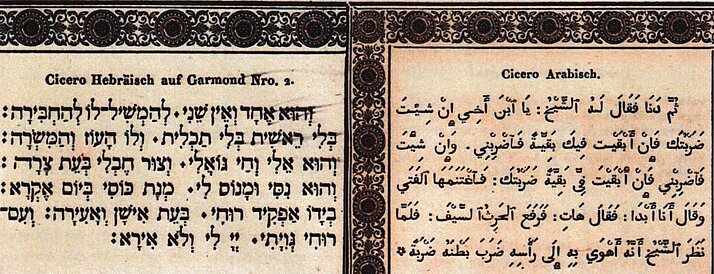 Cicero Hebräisch auf Garmond Nro. 2.
וְהוּא אֶחָד וְאֵין שֵׁנִי. לְהַמְשִׁיל־לוֹ לְהַחְבִּירָה:
בְּלִי רֵאשִׁית בְּלִי תַכְלִית. וְלוֹ הָעוֹז וְהַמִּשְׂרָה:
וְהוּא אֵלִי וְחַי גּוֹאֲלִי. וְצוּר חֶבְלִי בְּעֵת צָרָה:
וְהוּא נִסִּי וּמָנוֹס לִי. מְנָת כּוֹסִי בְּיוֹם אֶקְרָא:
בְּיָדוֹ אַפְקִיד רוּחִי. בְּעֵת אִישַׁן וְאָעִירָה: וְעִם־
רוּחִי גְּוִיָּתִי. יְיָ לִי וְלֹא אִירָא:
Cicero Arabisch.
ثُمَّ دَنَا فَقَالَ لَهُ ٱلشَّيْخُ: يَا ٱبْنَ أَخِي إِنْ شِيْتَ
ضَرَبْتُكَ فَإِنْ أَبْقَيْتُ فِيكَ بَقِيَّةً فَٱضْرِبْنِي. وَإِنْ شِيْتَ
فَٱضْرِبْنِي فَإِنْ أَبْقَيْتَ فِيَّ بَقِيَّةً ضَرَبْتُكَ: فَٱغْتَنَمَهَا ٱلْفَتَى
وَقَالَ أَنَا أَبْدَا: فَقَالَ هَاتِ: فَرَفَعَ ٱلْحَرْثُ ٱلسَّيْفَ: فَلَمَّا
نَظَرَ ٱلشَّيْخُ أَنَّهُ أَهْوَى بِهِ إِلَى رَأْسِهِ ضَرَبَ بَطْنَهُ ضَرْبَةً *